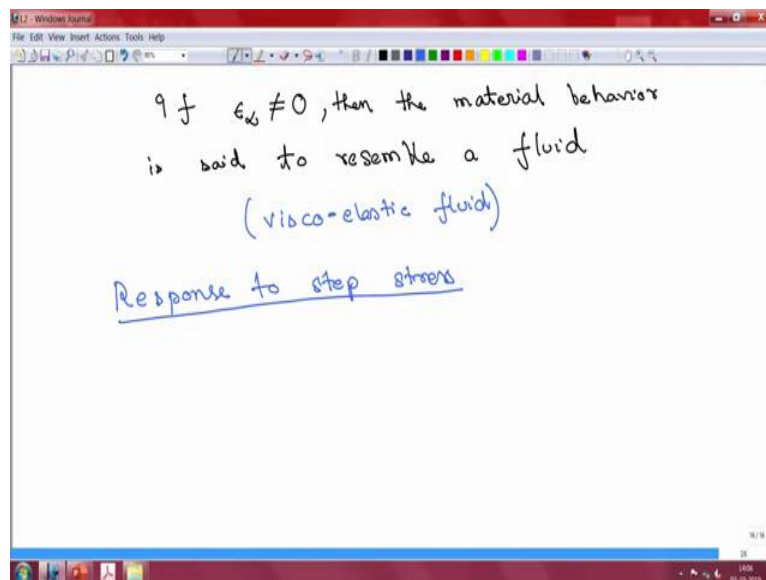 L2 - Windows Journal
File Edit View Insert Actions Tools Help
If ϵ∞ ≠ 0, then the material behavior
is said to resemble a fluid
(visco-elastic fluid)
Response to step stress
16/16
26
1406